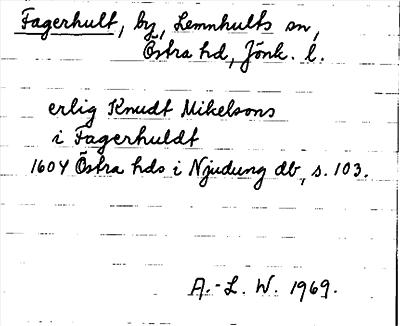 Fagerhult, by, Lemnhults sn,
Östra hd, Jönk. l.
erlig Knudt Mikelsons
i Fagerhuldt
1604 Östra hds i Njudung db, s. 103.
A.-L. W. 1969.